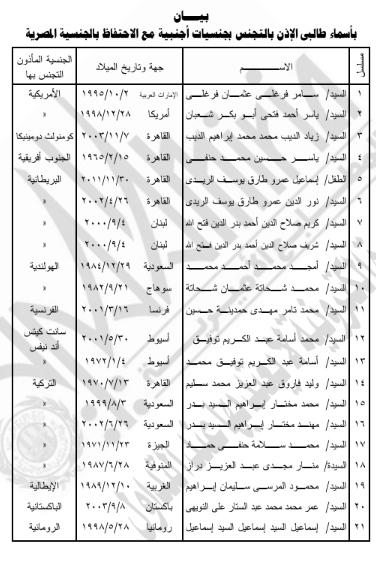 بيـــان
بأسماء طالبى الإذن بالتجنس بجنسيات أجنبية مع الاحتفاظ بالجنسية المصرية
مسلسل الاســـــم جهة وتاريخ الميلاد الجنسية المأذون التجنس بها
١ السيد/ سـامر فرغلـى عثمـان فرغلـى الإمارات العربية ١٩٩٥/١٠/٢ الأمريكية
٢ السيد/ ياسر أحمد فتحى أبـو بكر شـعبان أمريكا ١٩٩٨/١٢/٢٧ «
٣ السيد/ زياد الديب محمد محمد إبراهيم الديب القاهرة ٢٠٠٣/١١/٧ كومنولث دومينيكا
٤ السيد/ ياسـر حسـين محمـد حنفـى القاهرة ١٩٦٥/٢/١٥ الجنوب أفريقية
٥ الطفل/ إسماعيل عمرو طارق يوسف الريدى القاهرة ٢٠١١/١١/٣٠ البريطانية
٦ السيد/ نور الدين عمرو طارق يوسف الريدى القاهرة ٢٠٠٢/٤/٢٦ «
٧ السيد/ كريم صلاح الدين أحمد بدر الدين فتح الله لبنان ٢٠٠٠/٩/٤ «
٨ السيد/ شريف صلاح الدين أحمد بدر الدين فتـح الله لبنان ٢٠٠٠/٩/٤ «
٩ السيد/ أمجـد محمـد أحمـد محمـد السعودية ١٩٨٤/١٢/٢٩ الهولندية
١٠ السيد/ محمـد شـحاتة عثمـان شـحاتة سوهاج ١٩٨٢/٩/٢١ «
١١ السيد/ محمد تامر مهـدى حمديـة حسـين فرنسا ٢٠٠١/٣/١٦ الفرنسية
١٢ السيد/ محمد أسامة عبـد الكريم توفيـق أسيوط ٢٠٠١/٥/٣٠ سانت كيتس أند نيفس
١٣ السيد/ أسامة عبد الكريم توفيـق محمـد أسيوط ١٩٧٢/١/٤ «
١٤ السيد/ وليد فاروق عبد العزيز محمد سليم القاهرة ١٩٧٠/٧/١٣ التركية
١٥ السيد/ محمد مختـار إبراهيم السـيد بـدر السعودية ١٩٩٩/٨/٣ «
١٦ السيد/ مهنـد مختـار إبـراهيم السـيد بـدر السعودية ٢٠٠٢/٦/٢٦ «
١٧ السيد/ محمـد سـلامة حنفـى حمـاد الجيزة ١٩٧١/١١/٢٣ «
١٨ السيدة/ منـار مجـدى عبـد العزيـز دراز المنوفية ١٩٨٧/٦/٢٨ «
١٩ السيد/ محمـود المرسـى سـليمان إبراهيم الغربية ١٩٨٩/١٢/١٠ الإيطالية
٢٠ السيد/ عمر محمد محمد عبد الستار على النويهى باكستان ٢٠٠٣/٩/٨ الباكستانية
٢١ السيد/ إسماعيل السيد إسماعيل السيد إسماعيل رومانيا ١٩٩٨/٥/٢٨ الرومانية